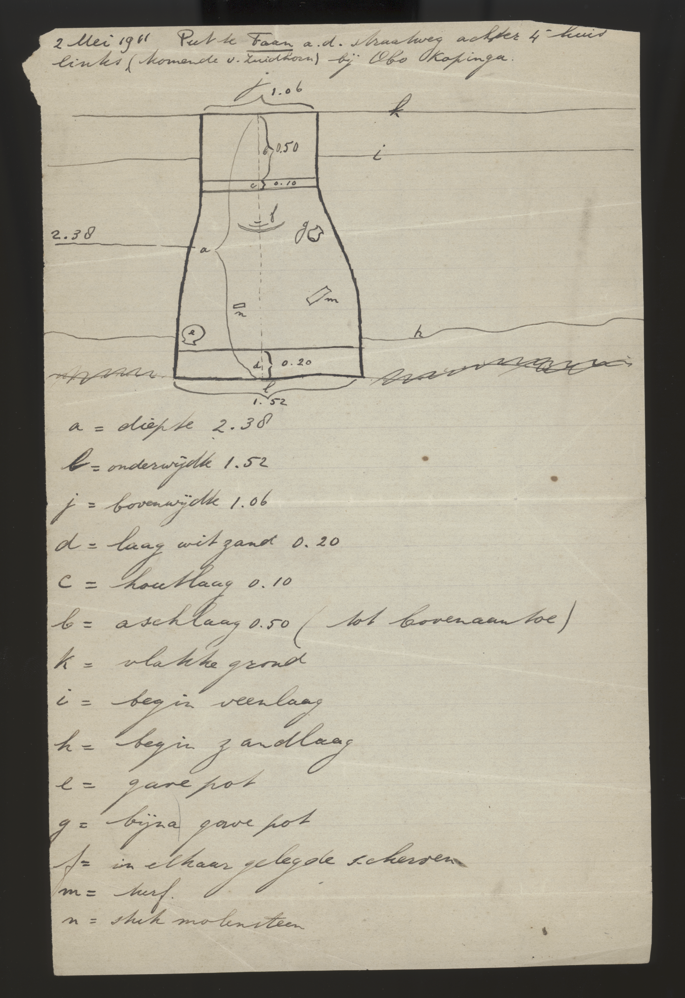 2 Mei 1911 Put te Faan a.d. straatweg achter 4e huis
links (komende v. Zuidhorn) bij Obo Kapinga.
j
1.06
k
b 0.50
i
c 0.10
f
g
2.38
a
m
n
e
h
d 0.20
l
1.52
a = diepte 2.38
l = onderwijdte 1.52
j = bovenwijdte 1.06
d = laag wit zand 0.20
c = houtlaag 0.10
b = aschlaag 0.50 (tot bovenaan toe)
k = vlakke grond
i = begin veenlaag
h = begin zandlaag
e = gave pot
g = bijna gave pot
f = in elkaar gelegde scherven
m = turf.
n = stuk molensteen